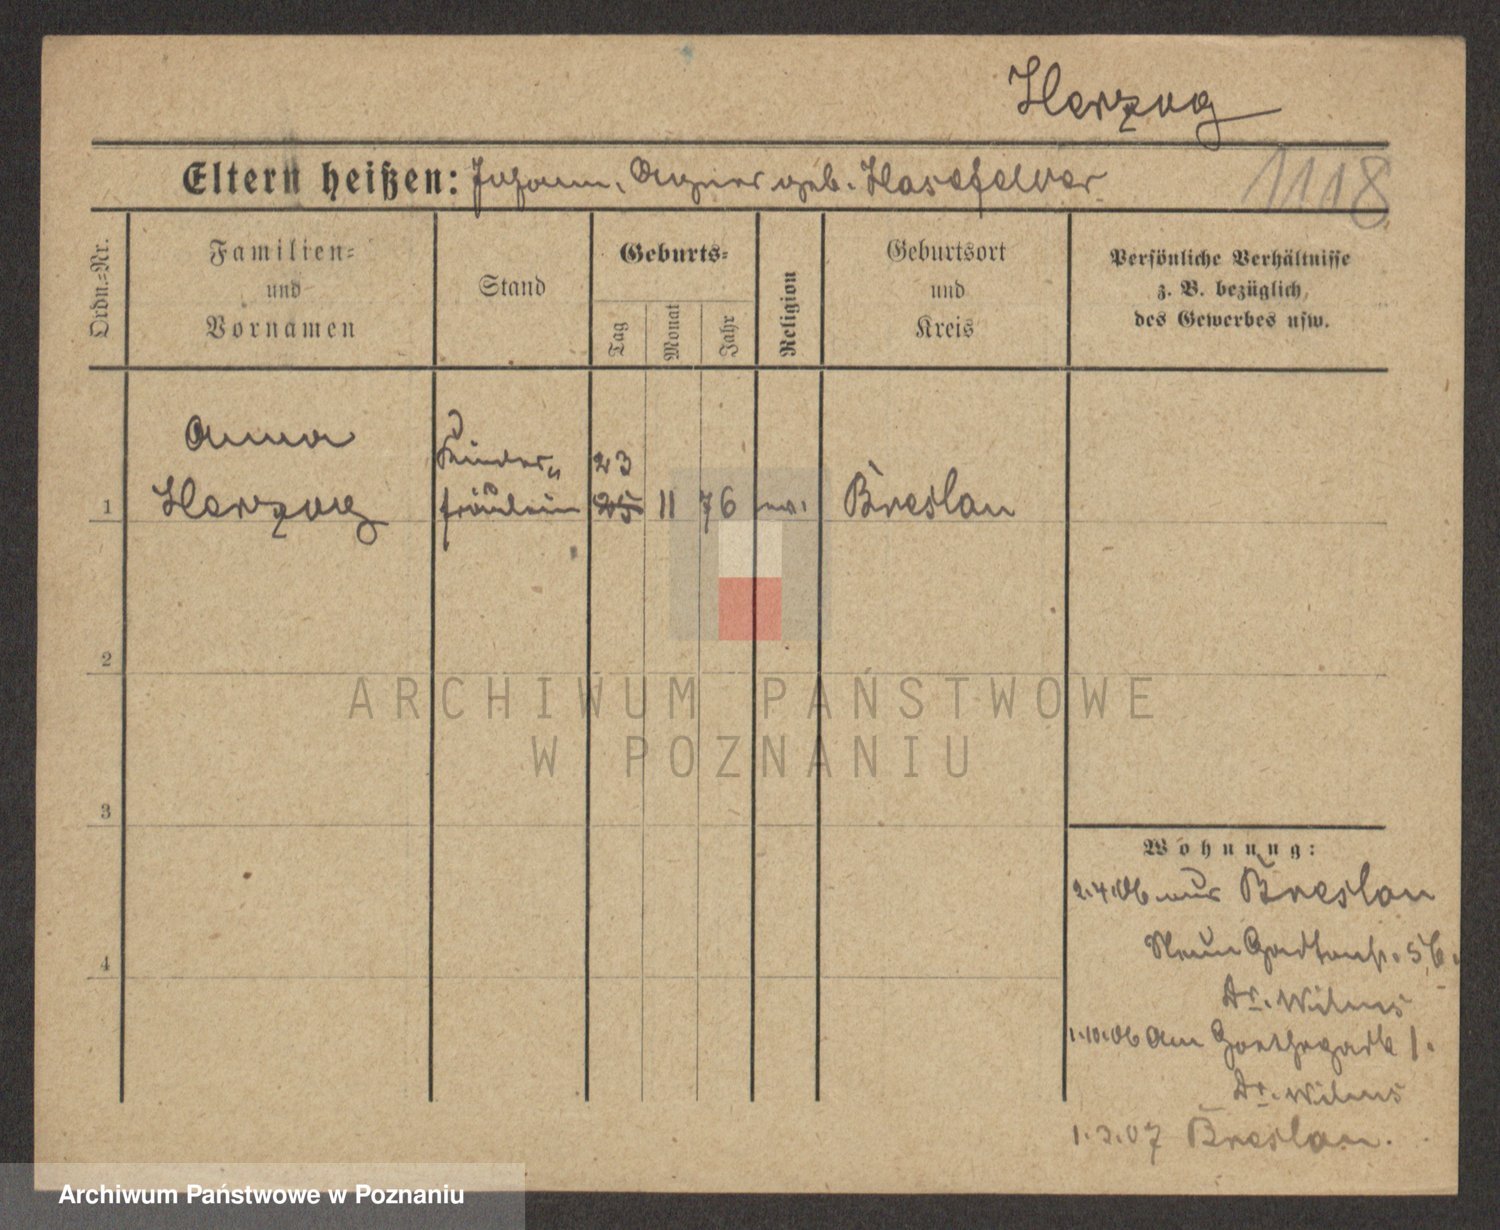 Herzog
Eltern heißen: Johann, Agnes geb. Hasefelder
1118
Ordn.-Nr.
Familien- und Vornamen
Stand
Geburts-
Tag
Monat
Jahr
Religion
Geburtsort und Kreis
Persönliche Verhältnisse
z. B. bezüglich
des Gewerbes usw.
Anna
Kinder-
23
1
Herzog
fräulein
25
11
76
ev.
Breslau
2
3
4
Wohnung:
2.4.06 aus Breslau
Neue Gartenstr. 56.
Dr. Wilms
1.10.06 Am Goethepark 1.
Dr. Wilms
1.3.07 Breslau.
ARCHIWUM PAŃSTWOWE
W POZNANIU
Archiwum Państwowe w Poznaniu